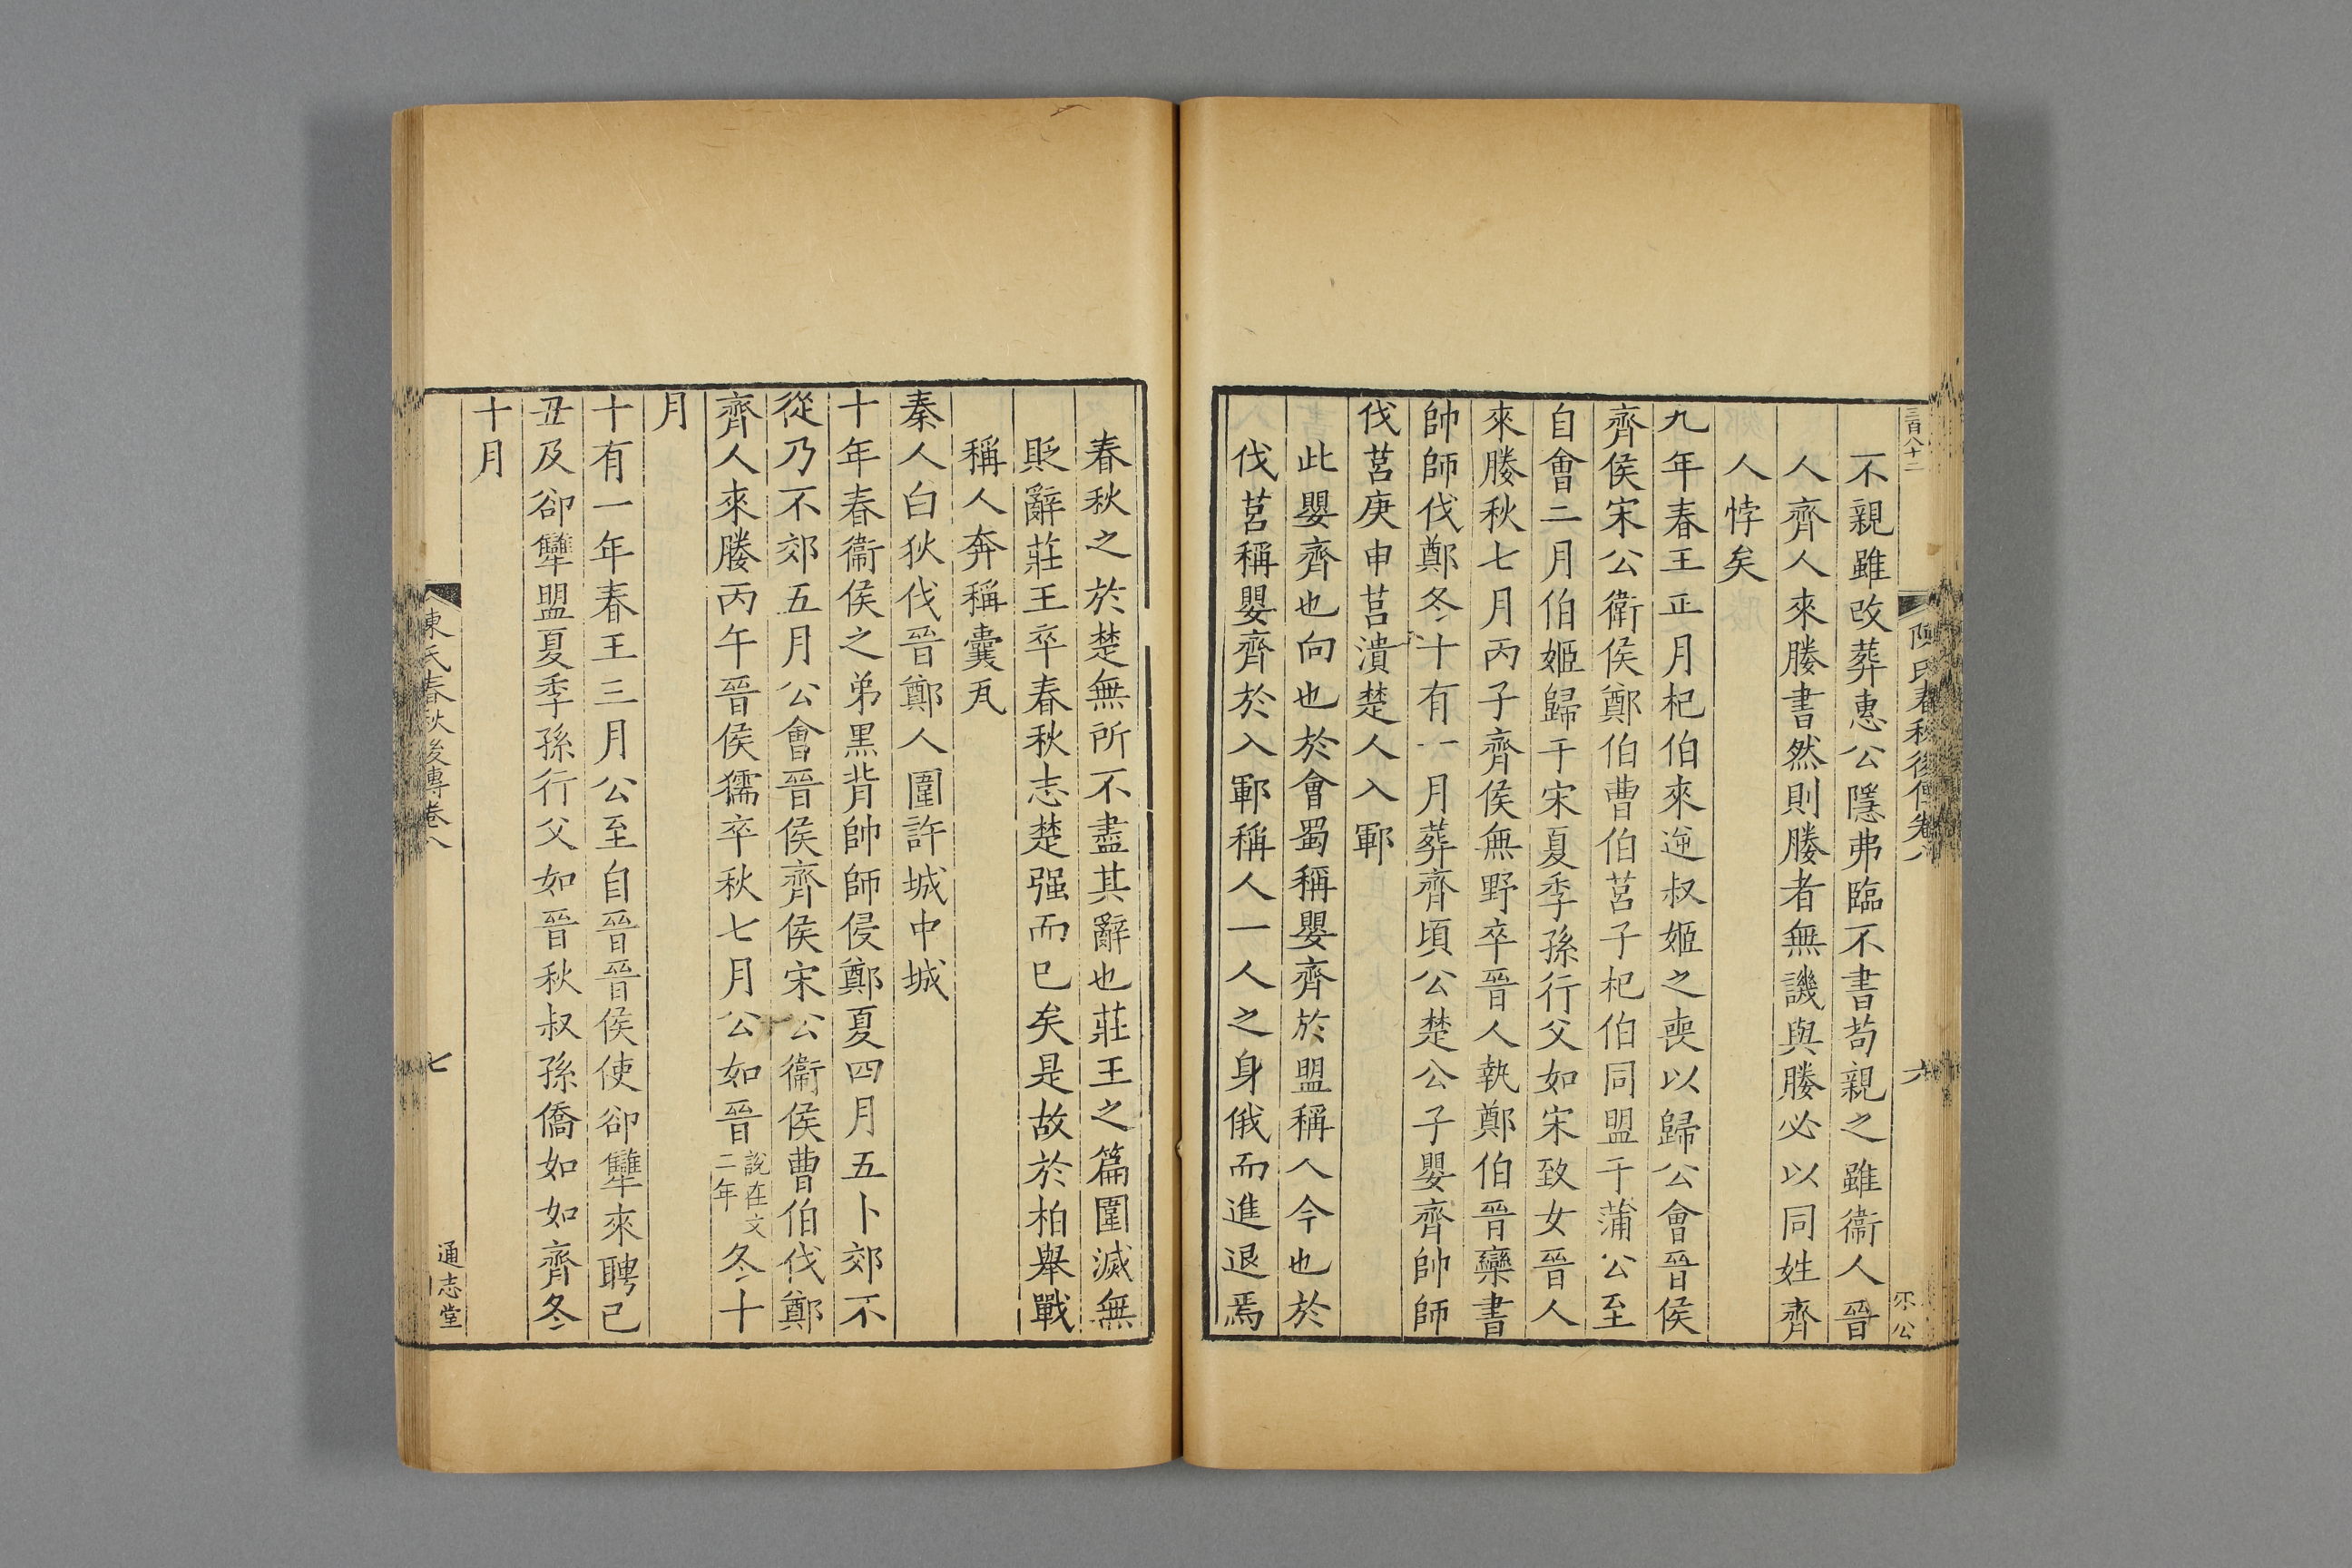 三百八十二
陳氏春秋後傳卷八
六
不親雖改葬惠公隱弗臨不書苟親之雖衞人晉
人齊人來媵書然則媵者無譏與媵必以同姓齊
人悖矣
九年春王正月杞伯來逆叔姬之喪以歸公會晉侯
齊侯宋公衛侯鄭伯曹伯莒子杞伯同盟于蒲公至
自會二月伯姬歸于宋夏季孫行父如宋致女晉人
來媵秋七月丙子齊侯無野卒晉人執鄭伯晉欒書
帥師伐鄭冬十有一月葬齊頃公楚公子嬰齊帥師
伐莒庚申莒潰楚人入鄆
此嬰齊也向也於會蜀稱嬰齊於盟稱人今也於
伐莒稱嬰齊於入鄆稱人一人之身俄而進退焉
春秋之於楚無所不盡其辭也莊王之篇圍滅無
貶辭莊王卒春秋志楚强而已矣是故於柏舉戰
稱人奔稱囊瓦
秦人白狄伐晉鄭人圍許城中城
十年春衞侯之弟黑背帥師侵鄭夏四月五卜郊不
從乃不郊五月公會晉侯齊侯宋公衞侯曹伯伐鄭
齊人來媵丙午晉侯獳卒秋七月公如晉說在文二年冬十
月
十有一年春王三月公至自晉晉侯使郤犨來聘己
丑及郤犨盟夏季孫行父如晉秋叔孫僑如如齊冬
十月
陳氏春秋後傳卷八
七
通志堂